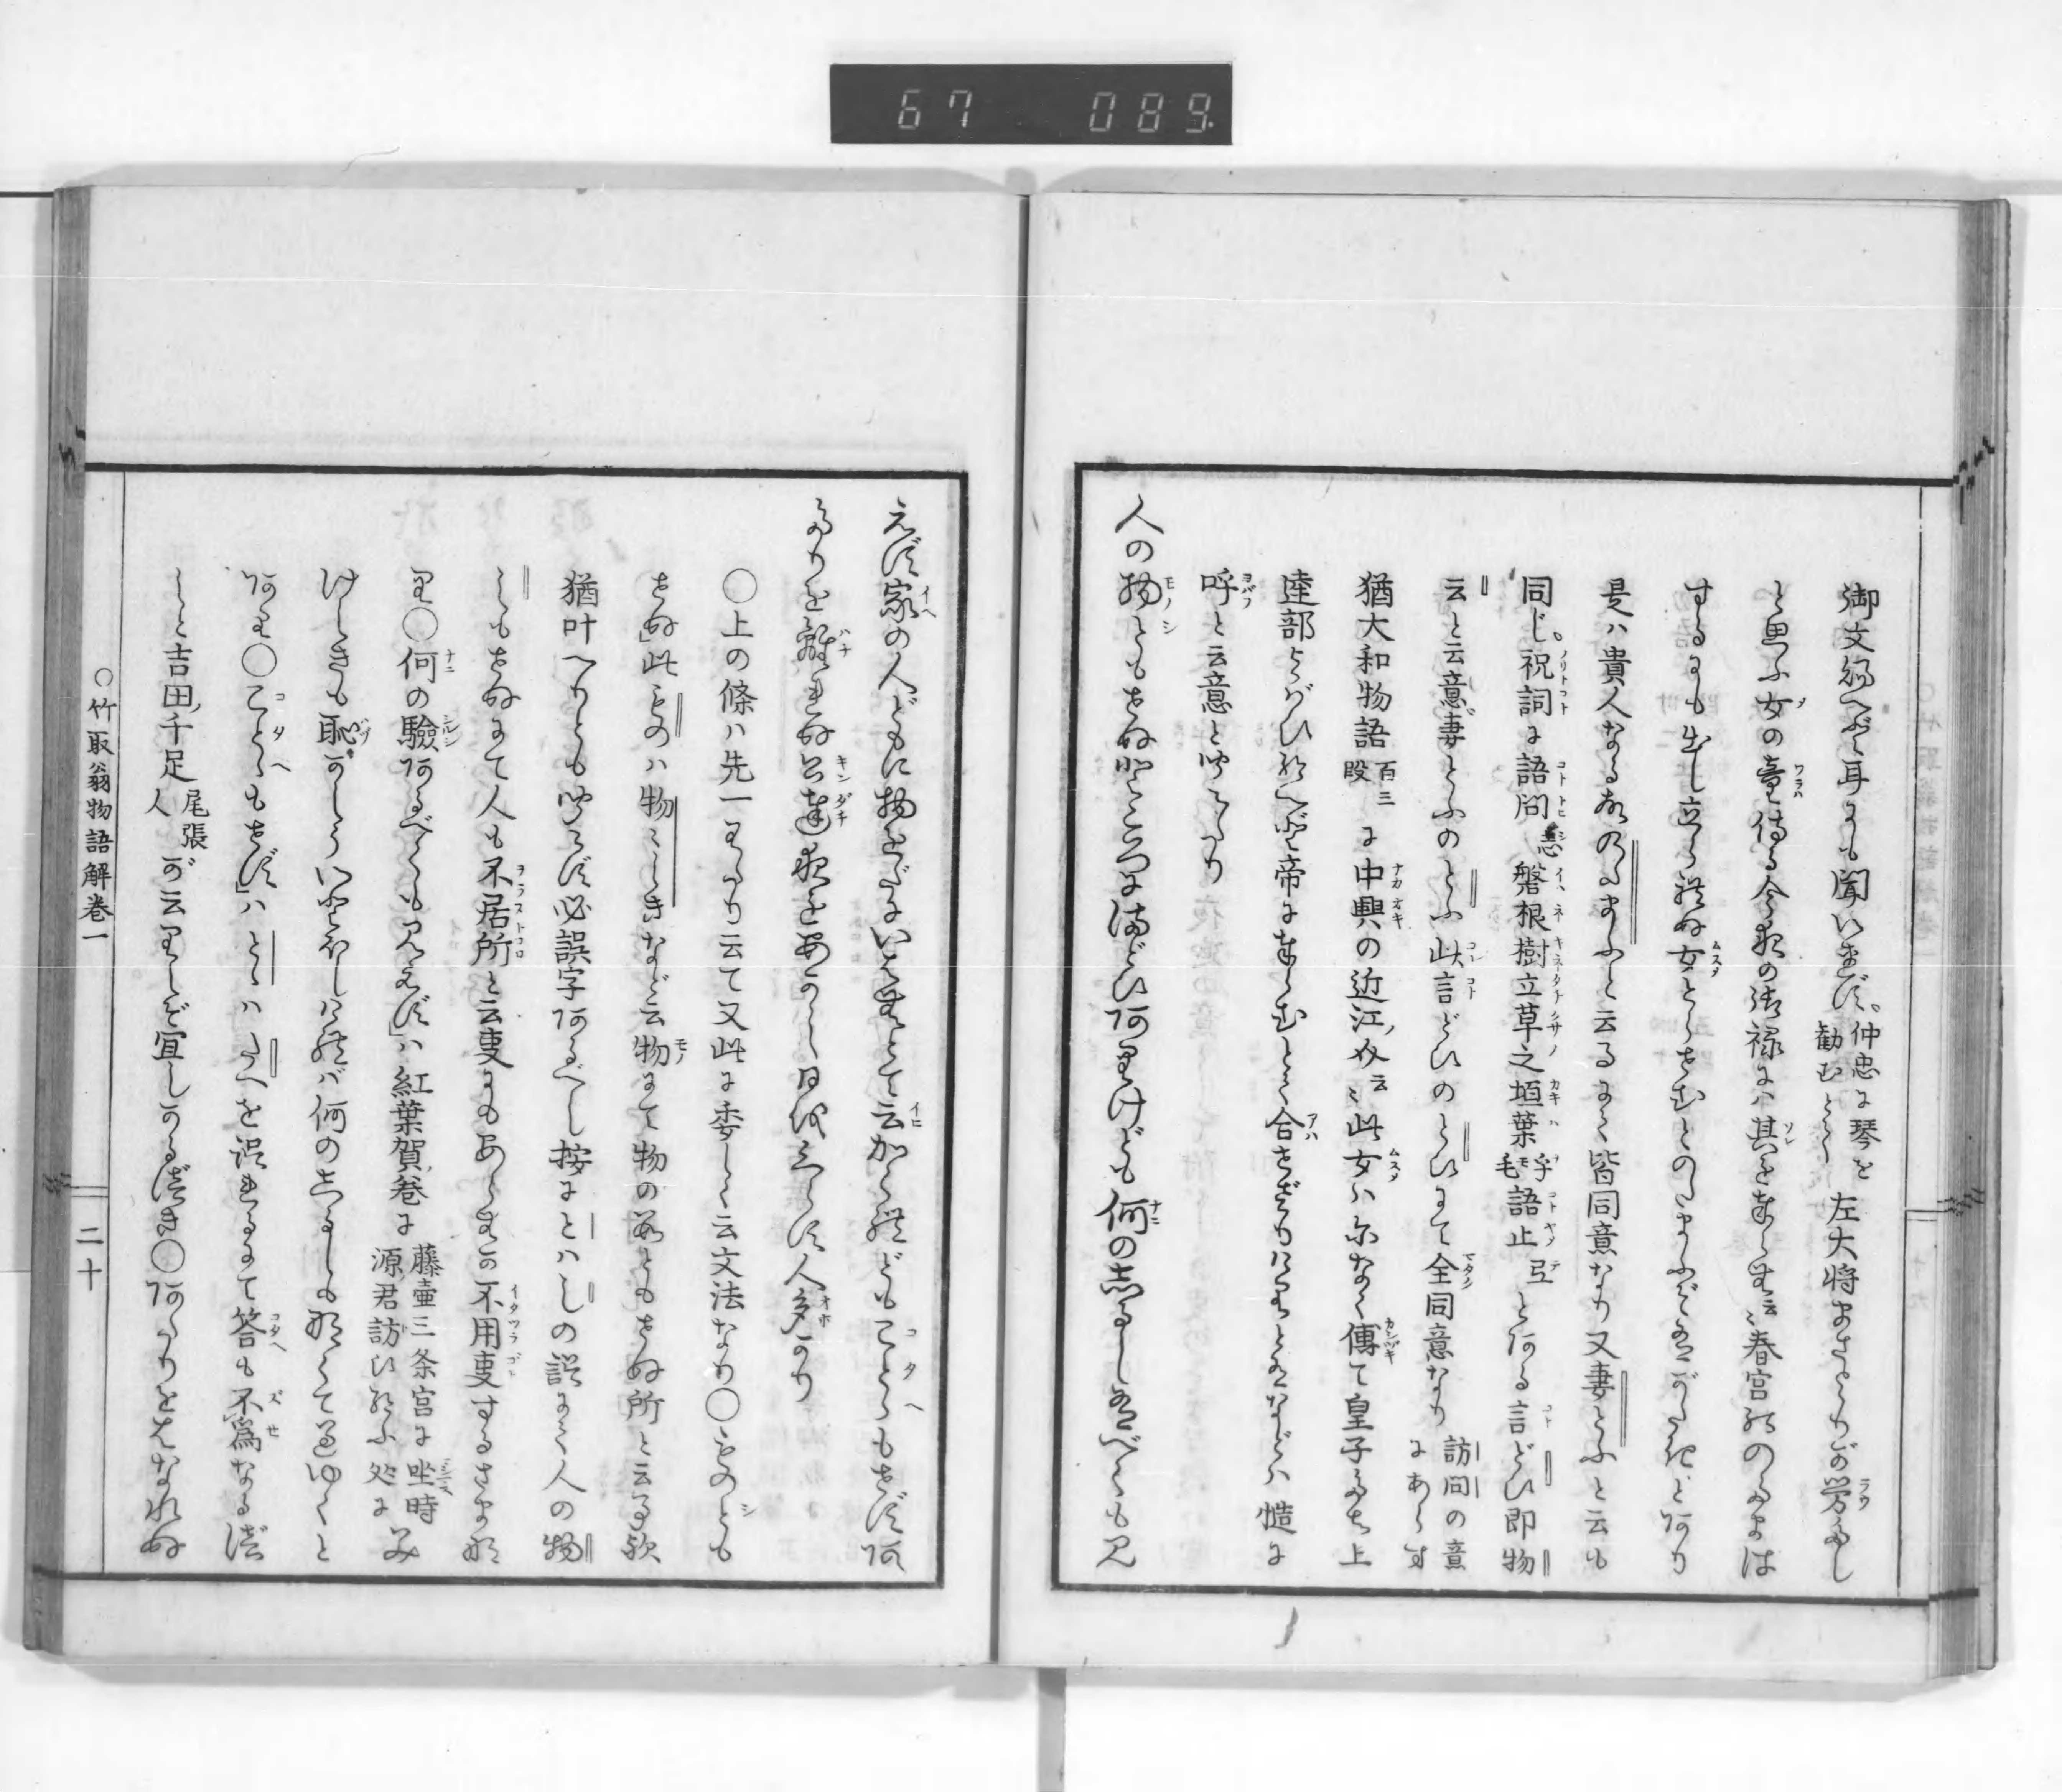 67 089
御文給へど耳にも聞いれず。仲忠に琴を勧むとて左大将まさよりが労し
と思ふ女の童侍る今夜の御禄には其を奉らむ云々春宮のの給は
するにも出し立られぬ女とらせむとのたまふぞありがたきとあり
是は貴人なる故のたまふと云るにて皆同意なり又妻とふと云も
同じ。祝詞に語問志磐根樹立草之垣葉乎毛語止弖とある言どひ即物
云と云意妻とふのとふ此言どひのとひにて全同意なり訪問の意にあらず
猶大和物語百三段に中興の近江介云々此女はになく傅て皇子たち上
達部よばひ給へど帝に奉らむとて合せざりけれとあるなどは慥に
呼と云意と聞えたり
人の物ともせぬ所に惑ひありけども何のしるしあるべくも見
えず家の人どもに物をだにいはむとて云かくれどもことゝもせずあ
たりを離れぬ公達夜をあかし日を暮す人多かり
○上の條は先一わたり云て又此に委しく云文法なり○ものとも
せぬ」此ものは物々しきなど云物にて物の数ともせぬ所と云る歟
猶叶へりとも聞えず必誤字あるべし按にとはしの誤にて人の物
しもせぬにて人も不居所と云事にもあらむか不用事するさまな
り○何の験あるべくも見えず」は紅葉賀巻に藤壺三条宮に坐時源君訪ひ給ふ処にみ
けしきも恥かしういとほしければ何のしるしもなくて過ゆくと
あり○ことゝもせず」はとゝはたへを誤れるにて答も不為なる
しと吉田千足尾張人が云りしぞ宜しかるべき○あたりをはなれぬ
○竹取翁物語解巻一
二十